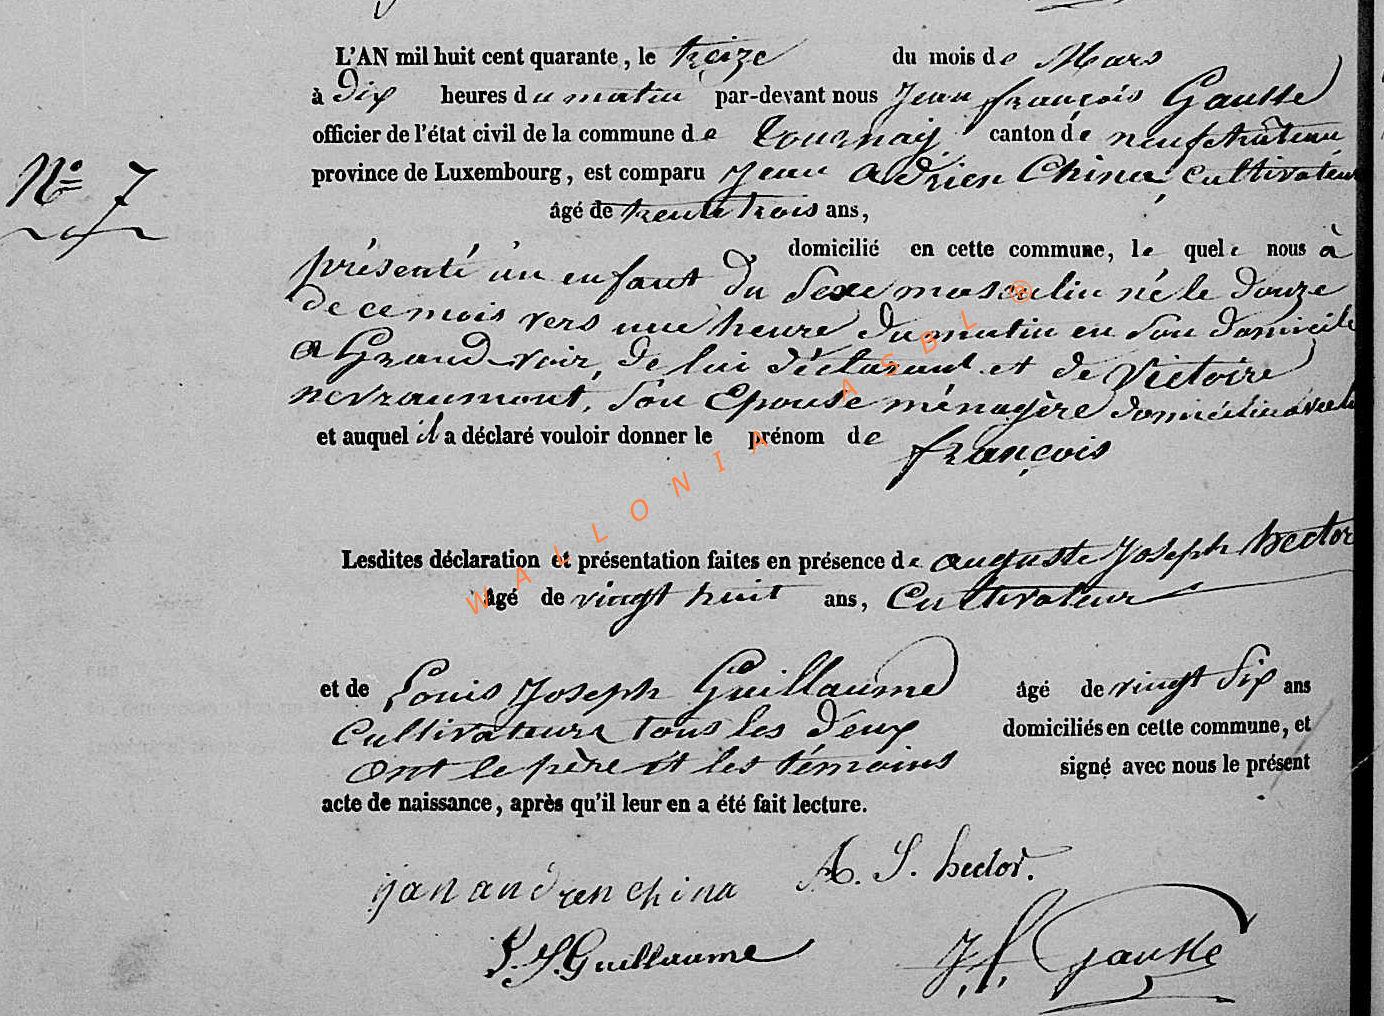 L'AN mil huit cent quarante, le treize du mois de Mars
à Dix heures du matin par-devant nous Jean françois Gausse
officier de l'état civil de la commune de Tournay canton de neufchâteau
province de Luxembourg, est comparu Jean adrien China, Cultivateur
N° 7
âgé de trente trois ans,
domicilié en cette commune, le quel nous à
présenté un enfant Du Sexe masculin né le douze
de ce mois vers une heure du matin en Son domicile
a Grand-voir, de lui déclarant et de Victoire
nevraumont, Son Epouse ménagère domiciliée avec lui
et auquel il a déclaré vouloir donner le prénom de
françois
Lesdites déclaration et présentation faites en présence de auguste Joseph hector
âgé de vingt huit ans, Cultivateur
et de Louis Joseph Guillaume âgé de vingt Six ans
Cultivateurs tous les deux domiciliés en cette commune, et
Ont le père et les témoins signé avec nous le présent
acte de naissance, après qu'il leur en a été fait lecture.
A. J. hector.
jan andren china
L. J. Guillaume
J. f. Gausse
WALLONIA ASBL ®